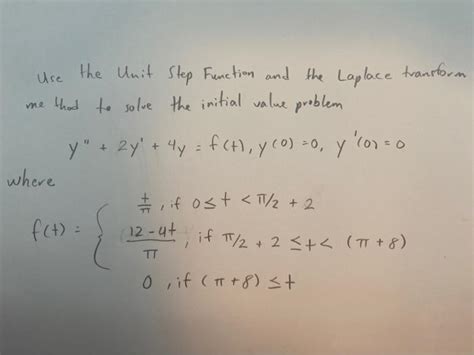 Use the Unit Step Function and the Laplace transform
method to solve the initial value problem
y" + 2y' + 4y = f(t), y(0) = 0, y'(0) = 0
where
f(t) = { t/π, if 0 ≤ t < π/2 + 2
(12 - 4t)/π, if π/2 + 2 ≤ t < (π + 8)
0, if (π + 8) ≤ t